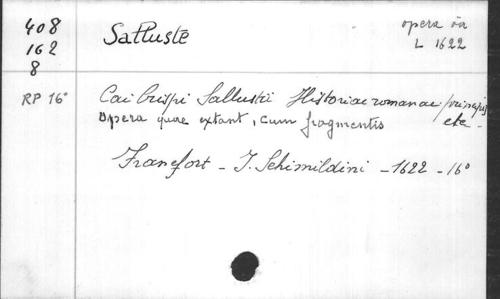 408
162
8
Salluste
opera va
L 1622
RP 16°
Cai Crispi Sallustii Historiae romanae principis
Opera quae extant, cum fragmentis etc -
Francfort - J. Schimildini - 1622 - 16°